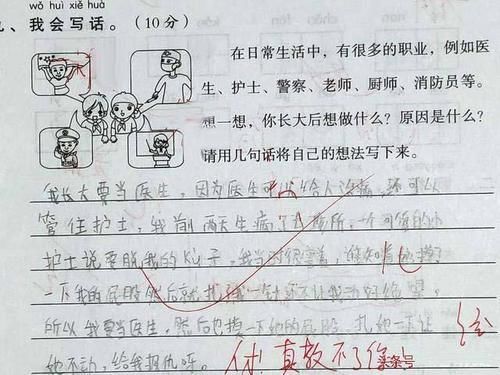 wǒ huì xiě huà
九、我会写话。(10分)
在日常生活中，有很多的职业，例如医
生、护士、警察、老师、厨师、消防员等。
想一想，你长大后想做什么？原因是什么？
请用几句话将自己的想法写下来。
我长大要当医生，因为医生可以给人治病，还可以
管住护士，我前两天生病了去诊所，一个可恶的小
护士说要脱我的kù子，我当时很害羞，谁知道她摸了
一下我的屁股然后就扎我一针还不让我动好绝望，
所以我要当医生，然后也摸一下她的屁股，扎她一下让
她不动，给我报仇呀。
休！真教不了你
条号